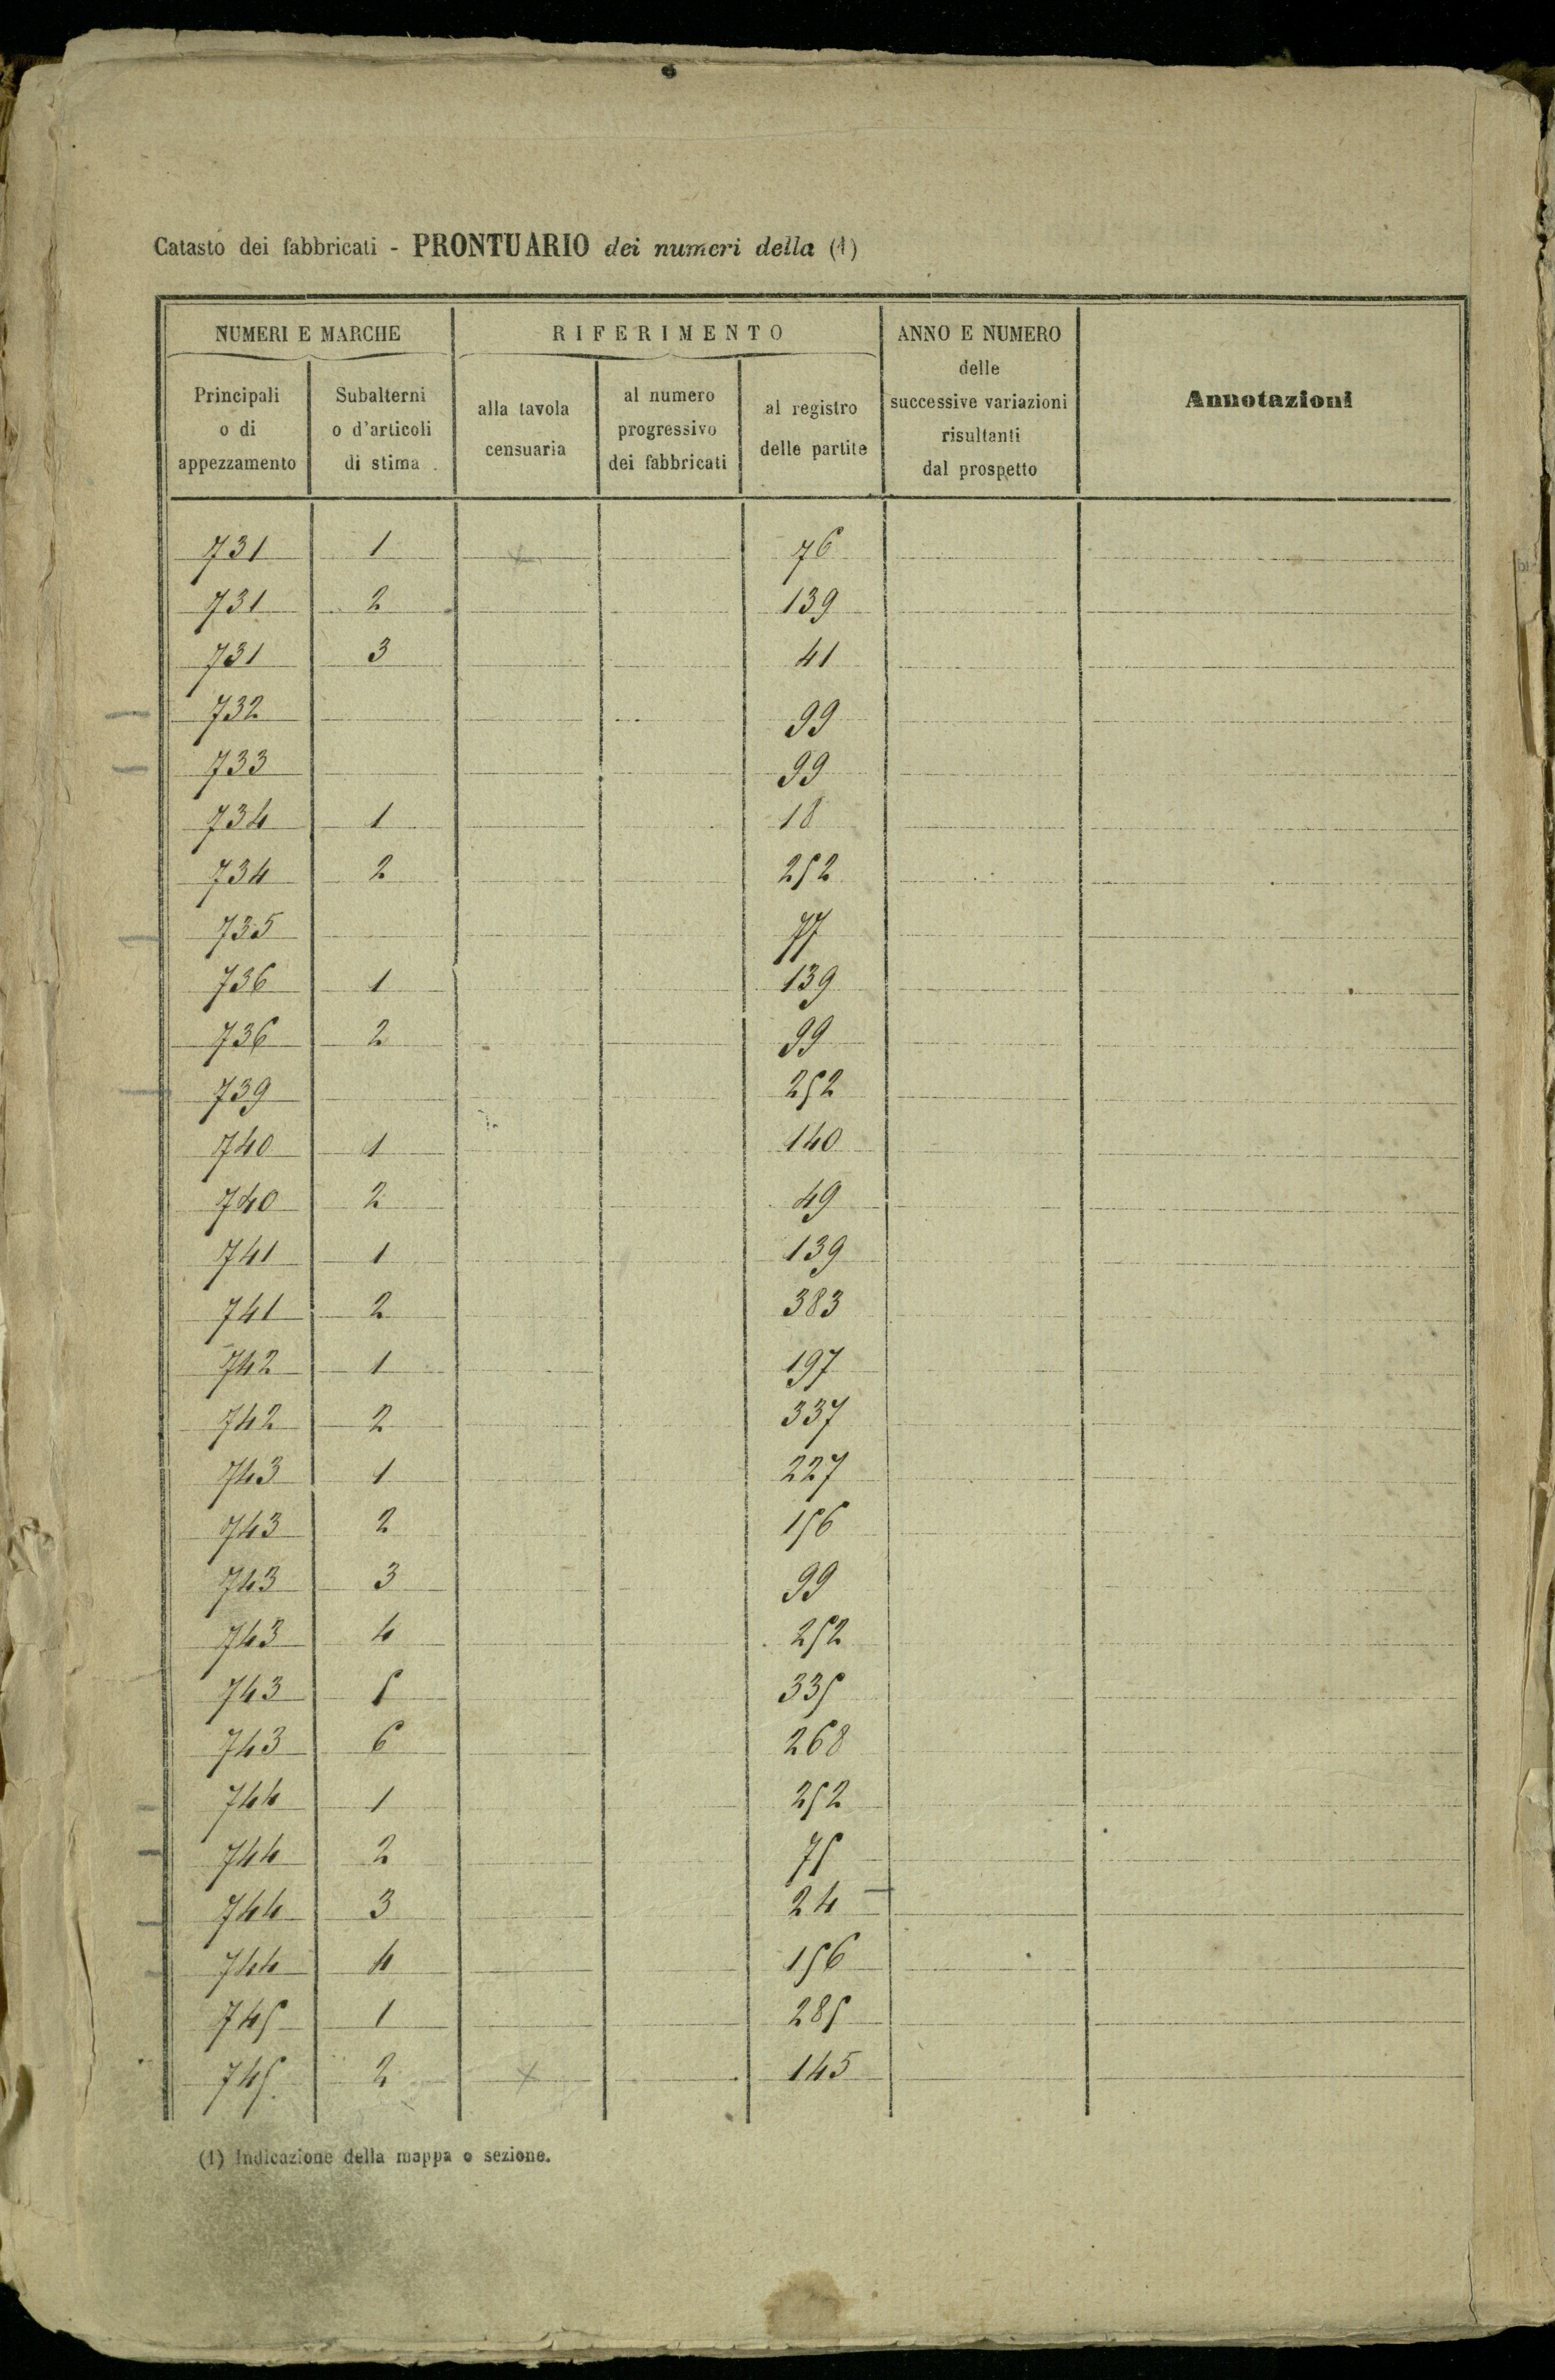 Catasto dei fabbricati - PRONTUARIO dei numeri della (1)
NUMERI E MARCHE
RIFERIMENTO
ANNO E NUMERO
delle
successive variazioni
risultanti
dal prospetto
Annotazioni
Principali
o di
appezzamento
Subalterni
o d'articoli
di stima
alla tavola
censuaria
al numero
progressivo
dei fabbricati
al registro
delle partite
731 1 76
731 2 139
731 3 41
732 99
733 99
734 1 18
734 2 252
735 77
736 1 139
736 2 99
739 252
740 1 140
740 2 49
741 1 139
741 2 383
742 1 197
742 2 337
743 1 227
743 2 156
743 3 99
743 4 252
743 5 335
743 6 268
744 1 252
744 2 75
744 3 24
744 4 156
745 1 285
745 2 145
(1) Indicazione della mappa o sezione.